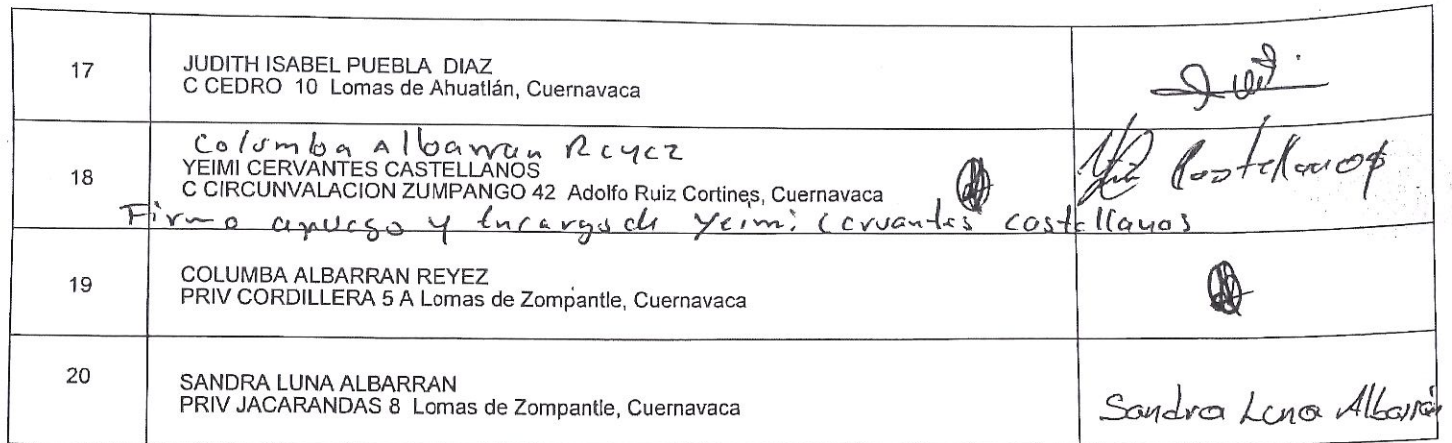 17
JUDITH ISABEL PUEBLA DIAZ
C CEDRO 10 Lomas de Ahuatlán, Cuernavaca
Columba Albarran Reyez
18
YEIMI CERVANTES CASTELLANOS
C CIRCUNVALACION ZUMPANGO 42 Adolfo Ruiz Cortines, Cuernavaca
Castellanos
Firmo y Encargo de Yeimi Cervantes Castellanos
19
COLUMBA ALBARRAN REYEZ
PRIV CORDILLERA 5 A Lomas de Zompantle, Cuernavaca
20
SANDRA LUNA ALBARRAN
PRIV JACARANDAS 8 Lomas de Zompantle, Cuernavaca
Sandra Luna Albarrán